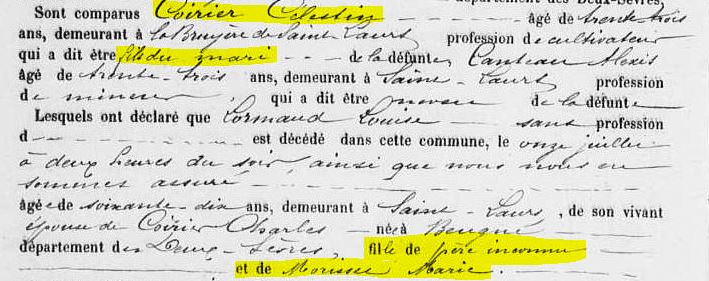 département des Deux-Sèvres,
Sont comparus Coirier Célestin âgé de trente trois
ans, demeurant à la Bruyère de Saint-Laurs profession de cultivateur
qui a dit être fils du mari de la défunte, Canteau Alexis
âgé de trente-trois ans, demeurant à Saint-Laurs profession
de mineur, qui a dit être neveu de la défunte
Lesquels ont déclaré que Lormaud Louise sans profession
d est décédé dans cette commune, le onze juillet
à deux heures du soir, ainsi que nous nous en
sommes assuré
âgée de soixante-dix ans, demeurant à Saint-Laurs, de son vivant
épouse de Coirier Charles née à
département des Deux-Sèvres, fille de père inconnu
et de Morisset Marie.